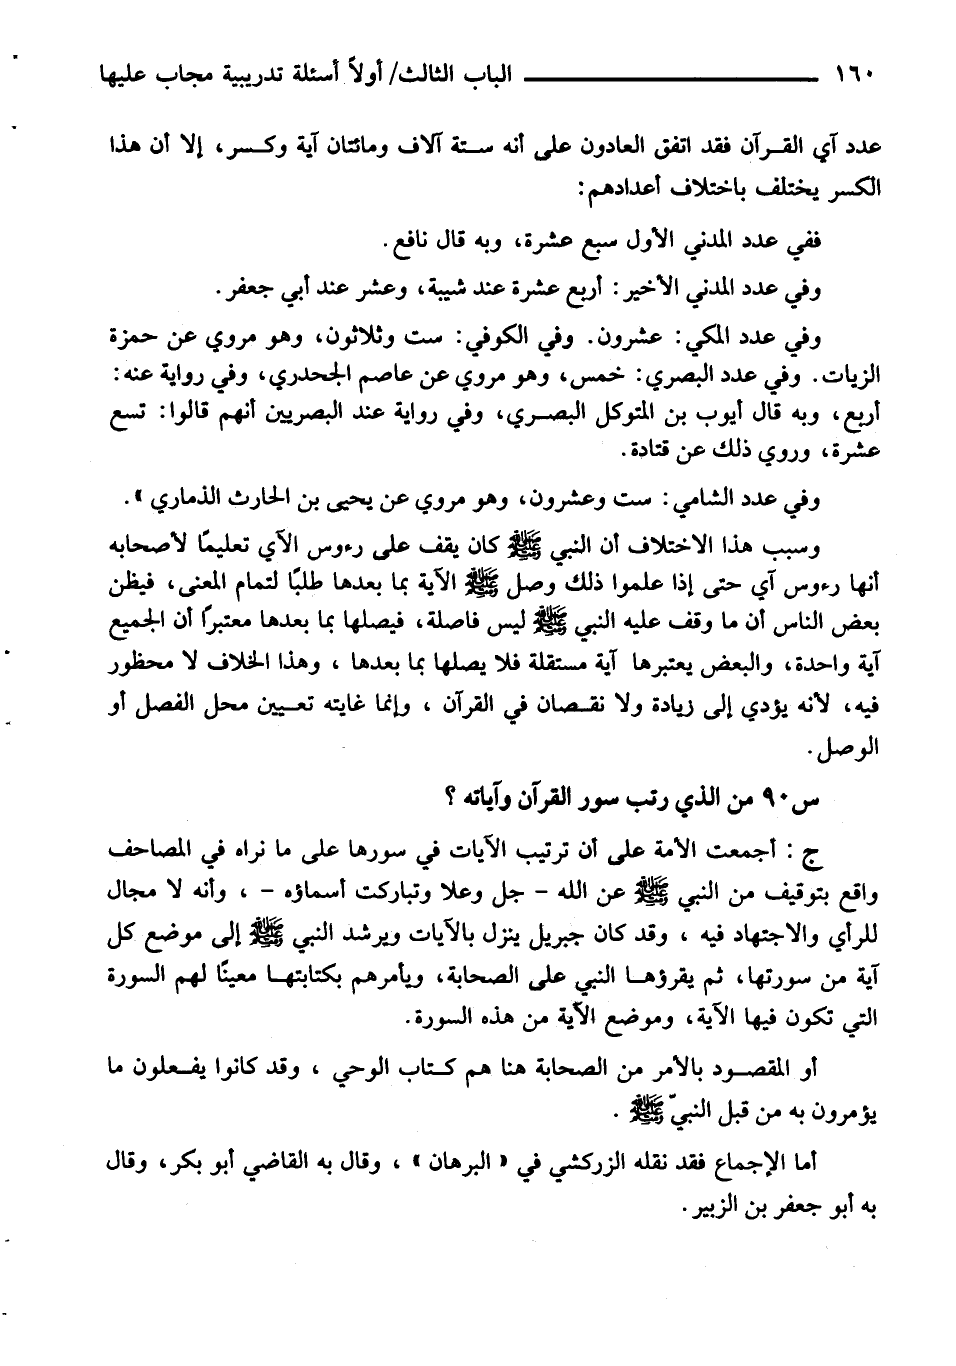 ١٦٠ ـــــــــــــــــــــــــــ الباب الثالث/ أولاً أسئلة تدريبية مجاب عليها
عدد آي القـرآن فقد اتفق العادون على أنه ستـة آلاف ومائتان آية وكسـر، إلا أن هذا
الكسر يختلف باختلاف أعدادهم:
ففي عدد المدني الأول سبع عشرة، وبه قال نافع.
وفي عدد المدني الأخير: أربع عشرة عند شيبة، وعشر عند أبي جعفر.
وفي عدد المكي: عشرون. وفي الكوفي: ست وثلاثون، وهو مروي عن حمزة
الزيات. وفي عدد البصري: خمس، وهو مروي عن عاصم الجحدري، وفي رواية عنه:
أربع، وبه قال أيوب بن المتوكل البصـري، وفي رواية عند البصريين أنهم قالوا: تسع
عشرة، وروي ذلك عن قتادة.
وفي عدد الشامي: ست وعشرون، وهو مروي عن يحيى بن الحارث الذماري ».
وسبب هذا الاختلاف أن النبي ﷺ كان يقف على رءوس الآي تعليمًا لأصحابه
أنها رءوس آي حتى إذا علموا ذلك وصل ﷺ الآية بما بعدها طلبًا لتمام المعنى، فيظن
بعض الناس أن ما وقف عليه النبي ﷺ ليس فاصلة، فيصلها بما بعدها معتبرًا أن الجميع
آية واحدة، والبعض يعتبرها آية مستقلة فلا يصلها بما بعدها ، وهذا الخلاف لا محظور
فيه، لأنه يؤدي إلى زيادة ولا نقـصان في القرآن ، وإنما غايته تعـيين محل الفصل أو
الوصل.
س٩٠ من الذي رتب سور القرآن وآياته ؟
ج : أجمعت الأمة على أن ترتيب الآيات في سورها على ما نراه في المصاحف
واقع بتوقيف من النبي ﷺ عن الله - جل وعلا وتباركت أسماؤه - ، وأنه لا مجال
للرأي والاجتهاد فيه ، وقد كان جبريل ينزل بالآيات ويرشد النبي ﷺ إلى موضع كل
آية من سورتها، ثم يقرؤهـا النبي على الصحابة، ويأمرهم بكتابتهـا معينًا لهم السورة
التي تكون فيها الآية، وموضع الآية من هذه السورة.
أو المقصـود بالأمر من الصحابة هنا هم كـتاب الوحي ، وقد كانوا يفـعلون ما
يؤمرون به من قبل النبيّ ﷺ .
أما الإجماع فقد نقله الزركشي في « البرهان » ، وقال به القاضي أبو بكر، وقال
به أبو جعفر بن الزبير.